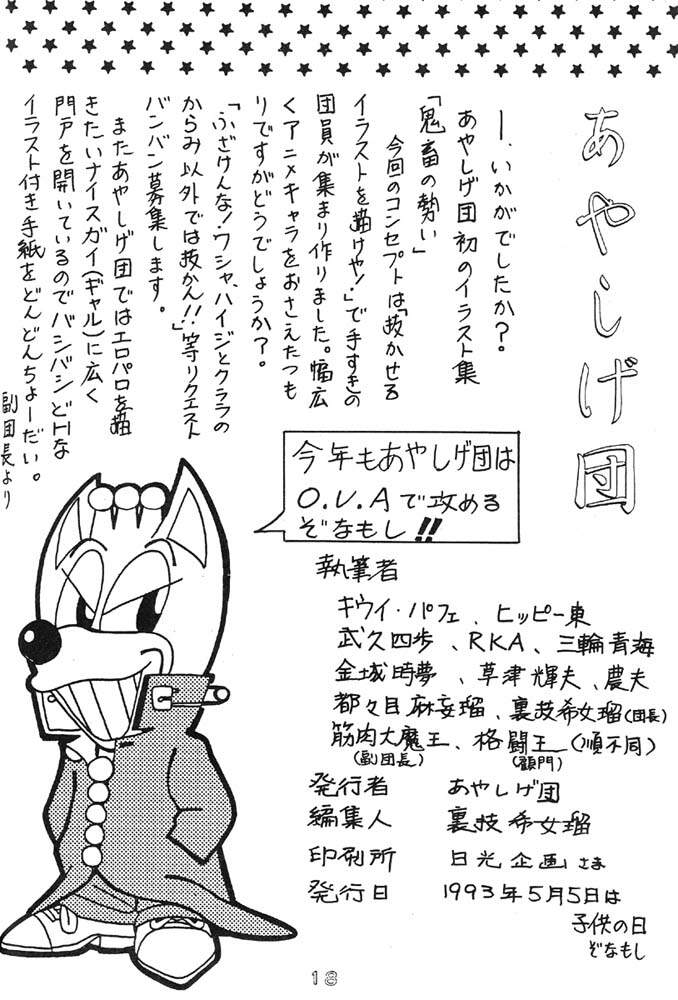 あやしげ団
ー、いかがでしたか？
あやしげ団初のイラスト集
「鬼畜の勢い」
今回のコンセプトは「抜かせる
イラストを描けや！」で手すきの
団員が集まり作りました。幅広
くアニメキャラをおさえたつも
りですがどうでしょうか？。
「ふざけんな！ワシャ、ハイジとクララの
からみ以外では抜かん！！」等リクエスト
バンバン募集します。
またあやしげ団ではエロパロを描
きたいナイスガイ（ギャル）に広く
門戸を開いているのでバシバシどHな
イラスト付き手紙をどんどんちょーだい。
副団長より
今年もあやしげ団は
O.V.Aで攻める
ぞなもし!!
執筆者
キウイ・パフェ、ヒッピー東
武久四歩、RKA、三輪青海
金城時夢、草津輝夫、農夫
都々目麻妄瑠、裏技希女瑠(団長)
筋肉大魔王、格闘王(順不同)
(副団長)　(顧問)
発行者　あやしげ団
編集人　裏技希女瑠
印刷所　日光企画さま
発行日　1993年5月5日は
子供の日
ぞなもし
18